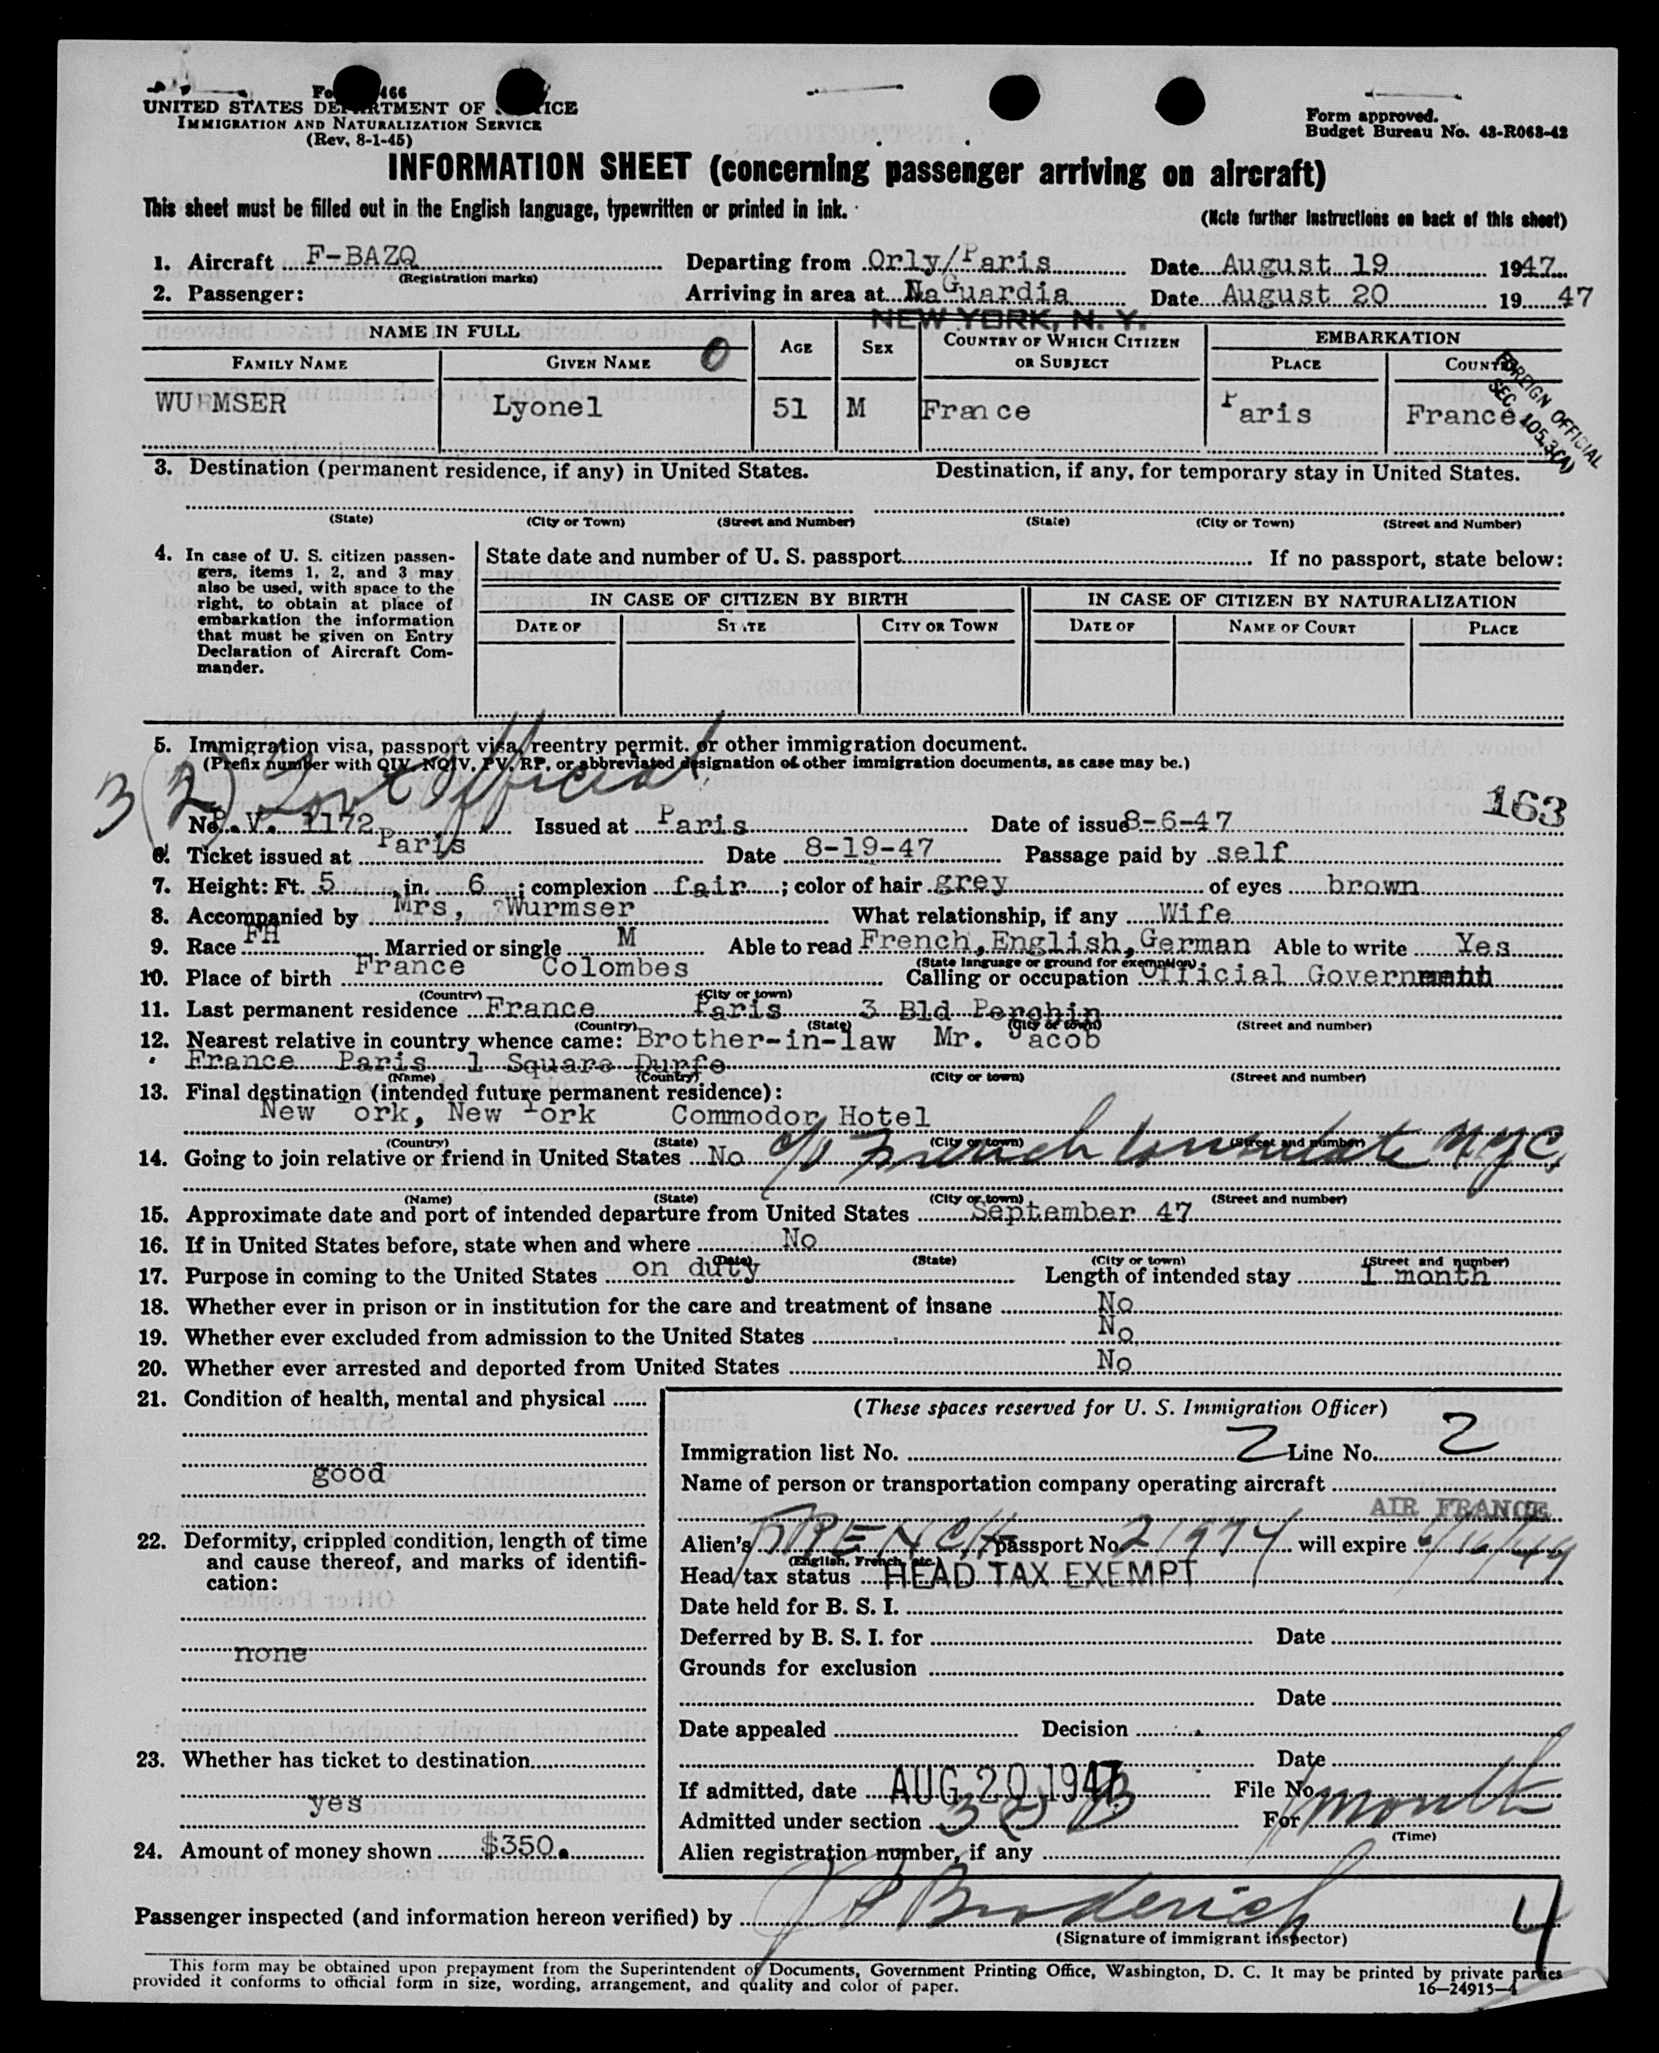 Fo 466
UNITED STATES DEPARTMENT OF JUSTICE
IMMIGRATION AND NATURALIZATION SERVICE
(Rev. 8-1-45)
Form approved.
Budget Bureau No. 43-R063-42
INFORMATION SHEET (concerning passenger arriving on aircraft)
This sheet must be filled out in the English language, typewritten or printed in ink.
(Note further instructions on back of this sheet)
1. Aircraft F-BAZQ Departing from Orly/Paris Date August 19 1947
(Registration marks)
2. Passenger: Arriving in area at LaGuardia Date August 20 19 47
NEW YORK, N. Y.
NAME IN FULL AGE SEX COUNTRY OF WHICH CITIZEN OR SUBJECT EMBARKATION
FAMILY NAME GIVEN NAME PLACE COUNTRY
WURMSER Lyonel 51 M France Paris France
FOREIGN OFFICIAL
SEC. 105.3(A)
3. Destination (permanent residence, if any) in United States. Destination, if any, for temporary stay in United States.
(State) (City or Town) (Street and Number) (State) (City or Town) (Street and Number)
4. In case of U. S. citizen passen-
gers, items 1, 2, and 3 may
also be used, with space to the
right, to obtain at place of
embarkation the information
that must be given on Entry
Declaration of Aircraft Com-
mander.
State date and number of U. S. passport If no passport, state below:
IN CASE OF CITIZEN BY BIRTH IN CASE OF CITIZEN BY NATURALIZATION
DATE OF STATE CITY OR TOWN DATE OF NAME OF COURT PLACE
5. Immigration visa, passport visa, reentry permit, or other immigration document.
(Prefix number with QIV, NQIV, PV, RP, or abbreviated designation of other immigration documents, as case may be.)
3(2) Govt Official
163
No. P.V. 1172 Issued at Paris Date of issue 8-6-47
6. Ticket issued at Paris Date 8-19-47 Passage paid by self
7. Height: Ft. 5, in. 6; complexion fair; color of hair grey of eyes brown
8. Accompanied by Mrs, Wurmser What relationship, if any Wife
9. Race FH Married or single M Able to read French, English, German Able to write Yes
(State language or ground for exemption)
10. Place of birth France Colombes Calling or occupation Official Government
(Country) (City or town)
11. Last permanent residence France Paris 3 Bld
(Country) (State) (City or town) (Street and number)
12. Nearest relative in country whence came: Brother-in-law Mr. Jacob
France Paris 1 Square Durfe
(Name) (Country) (City or town) (Street and number)
13. Final destination (intended future permanent residence):
New York, New York Commodor Hotel
(Country) (State) (City or town) (Street and number)
14. Going to join relative or friend in United States No c/o French Consulate NYC,
(Name) (State) (City or town) (Street and number)
15. Approximate date and port of intended departure from United States September 47
16. If in United States before, state when and where No
(Date) (State) (City or town) (Street and number)
17. Purpose in coming to the United States on duty Length of intended stay 1 month
18. Whether ever in prison or in institution for the care and treatment of insane No
19. Whether ever excluded from admission to the United States No
20. Whether ever arrested and deported from United States No
21. Condition of health, mental and physical
good
22. Deformity, crippled condition, length of time
and cause thereof, and marks of identifi-
cation:
none
23. Whether has ticket to destination
yes
24. Amount of money shown $350.
(These spaces reserved for U. S. Immigration Officer)
Immigration list No. 2 Line No. 2
Name of person or transportation company operating aircraft
AIR FRANCE
Alien's FRENCH passport No. 21974 will expire
(English, French, etc.)
Head tax status HEAD TAX EXEMPT
Date held for B. S. I.
Deferred by B. S. I. for Date
Grounds for exclusion
Date
Date appealed Decision
Date
If admitted, date AUG 20 1947 File No.
Admitted under section 3(2) B For 1 month
(Time)
Alien registration number, if any
Passenger inspected (and information hereon verified) by J Broderick
4
(Signature of immigrant inspector)
This form may be obtained upon prepayment from the Superintendent of Documents, Government Printing Office, Washington, D. C. It may be printed by private parties
provided it conforms to official form in size, wording, arrangement, and quality and color of paper.
16—24915-1